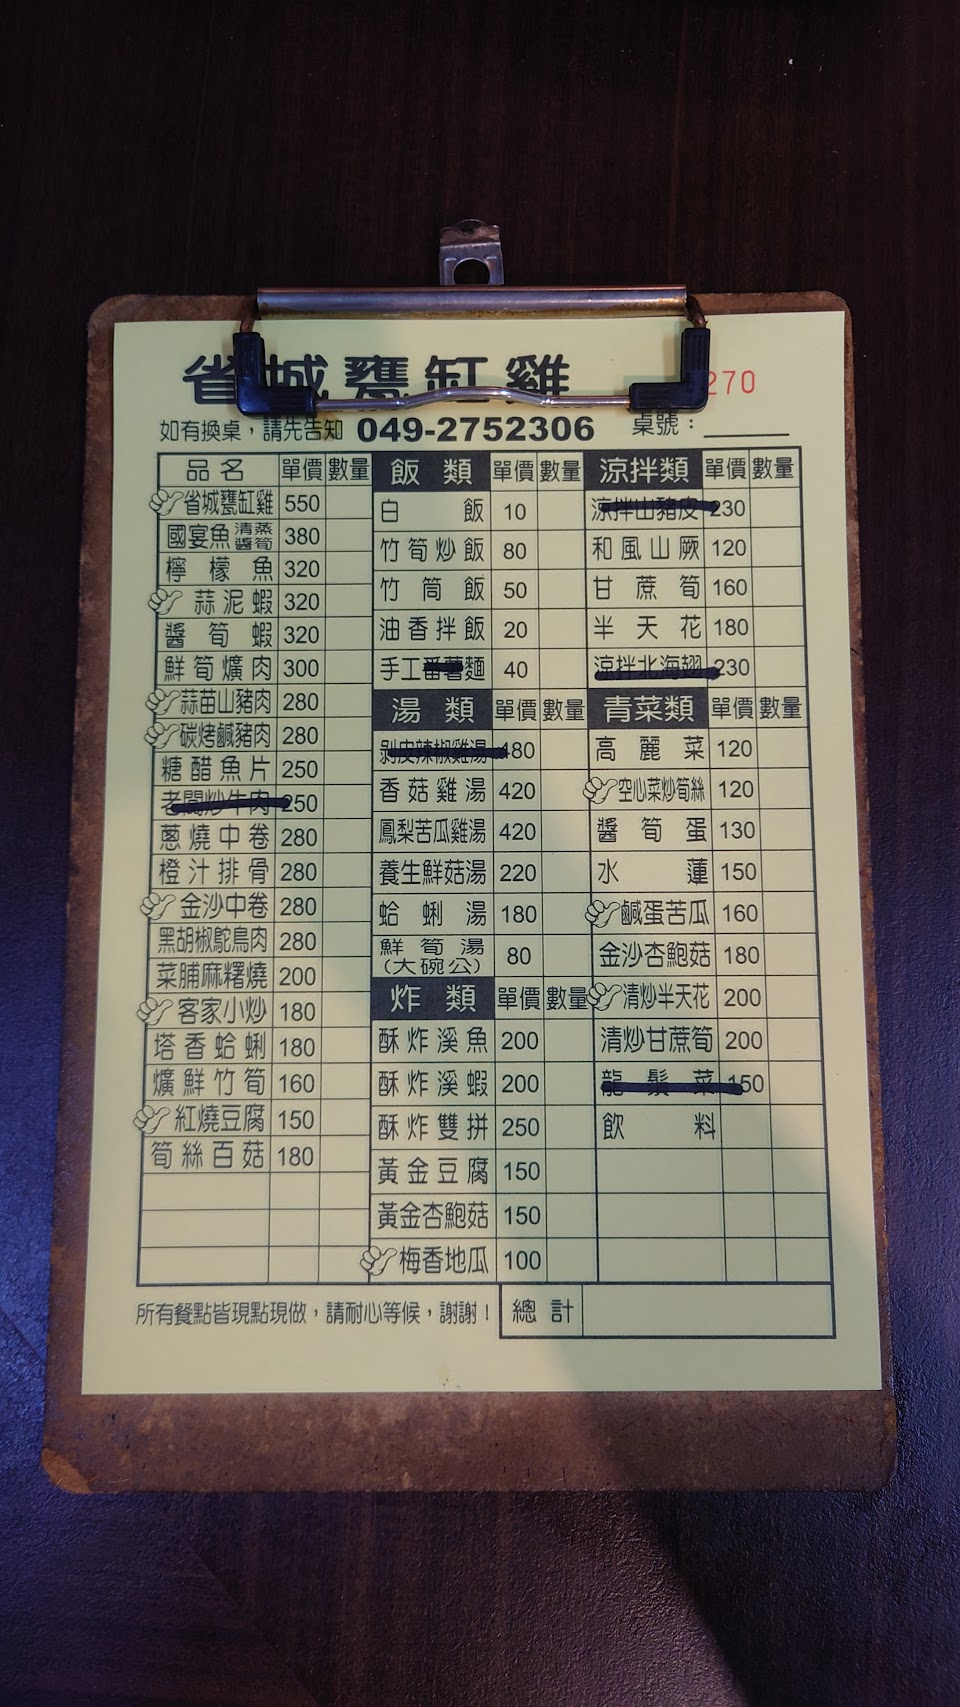 省城甕缸雞
270
如有換桌，請先告知 049-2752306 桌號：
品名 單價 數量
省城甕缸雞 550
國宴魚 清蒸 醬筍 380
檸檬魚 320
蒜泥蝦 320
醬筍蝦 320
鮮筍爌肉 300
蒜苗山豬肉 280
碳烤鹹豬肉 280
糖醋魚片 250
老闆炒牛肉 250
蔥燒中卷 280
橙汁排骨 280
金沙中卷 280
黑胡椒鴕鳥肉 280
菜脯麻糬燒 200
客家小炒 180
塔香蛤蜊 180
爌鮮竹筍 160
紅燒豆腐 150
筍絲百菇 180
飯類 單價 數量
白飯 10
竹筍炒飯 80
竹筒飯 50
油香拌飯 20
手工番薯麵 40
湯類 單價 數量
剝皮辣椒雞湯 480
香菇雞湯 420
鳳梨苦瓜雞湯 420
養生鮮菇湯 220
蛤蜊湯 180
鮮筍湯 80
(大碗公)
炸類 單價 數量
酥炸溪魚 200
酥炸溪蝦 200
酥炸雙拼 250
黃金豆腐 150
黃金杏鮑菇 150
梅香地瓜 100
涼拌類 單價 數量
涼拌山豬皮 230
和風山蕨 120
甘蔗筍 160
半天花 180
涼拌北海翅 230
青菜類 單價 數量
高麗菜 120
空心菜炒筍絲 120
醬筍蛋 130
水蓮 150
鹹蛋苦瓜 160
金沙杏鮑菇 180
清炒半天花 200
清炒甘蔗筍 200
龍鬚菜 150
飲料
所有餐點皆現點現做，請耐心等候，謝謝！
總計